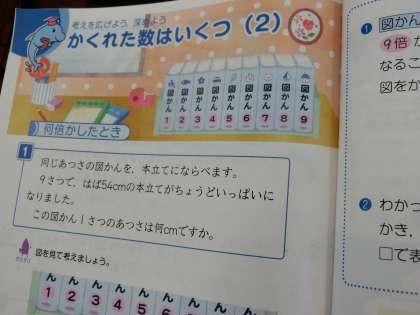 考えを広げよう 深めよう
かくれた数はいくつ (2)
図かん 1
図かん 2
図かん 3
図かん 4
図かん 5
図かん 6
図かん 7
図かん 8
図かん 9
何倍かしたとき
1
同じあつさの図かんを、本立てにならべます。
9さつで、はば54cmの本立てがちょうどいっぱいに
なりました。
この図かん1さつのあつさは何cmですか。
図を見て考えましょう。
ん ん ん ん ん ん ん ん ん
1 2 3 4 5 6 7 8 9
1 図かん
9倍か
なるこ
図をか
2 わかっ
かき、
□で表